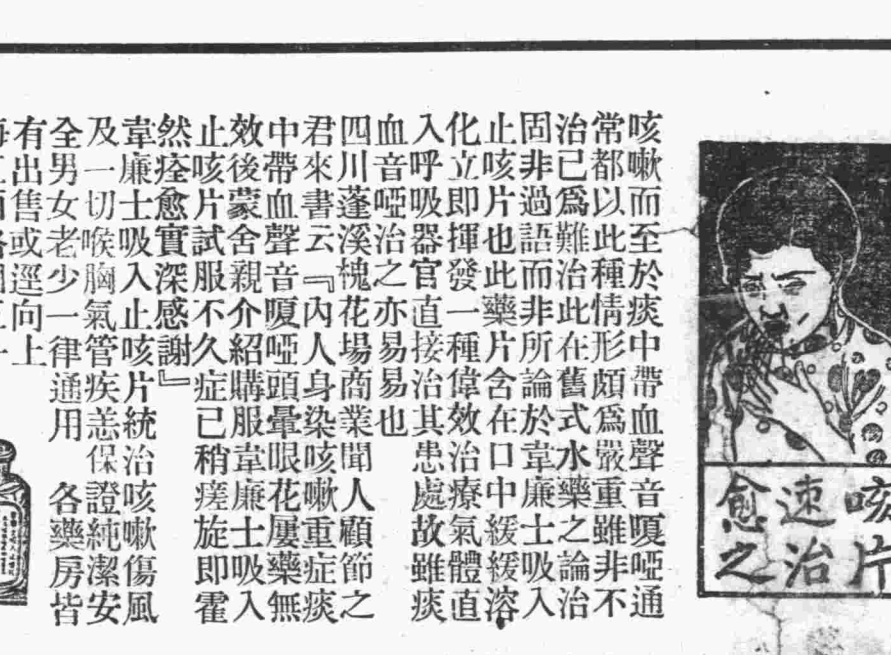 咳片
速治
愈之
咳嗽而至於痰中帶血聲音嗄啞通
常都以此種情形頗爲嚴重雖非不
治已爲難治此在舊式水藥之論治
固非過語而非所論於韋廉士吸入
止咳片也此藥片含在口中緩緩溶
化立即揮發一種偉效治療氣體直
入呼吸器官直接治其患處故雖痰
血音啞治之亦易易也
四川蓬溪槐花場商業聞人顧節之
君來書云『內人身染咳嗽重症痰
中帶血聲音嗄啞頭暈眼花屢藥無
效後蒙舍親介紹購服韋廉士吸入
止咳片試服不久症已稍瘥旋即霍
然痊愈實深感謝』
韋廉士吸入止咳片統治咳嗽傷風
及一切喉胸氣管疾恙保證純潔安
全男女老少一律通用 各藥房皆
有出售或逕向上